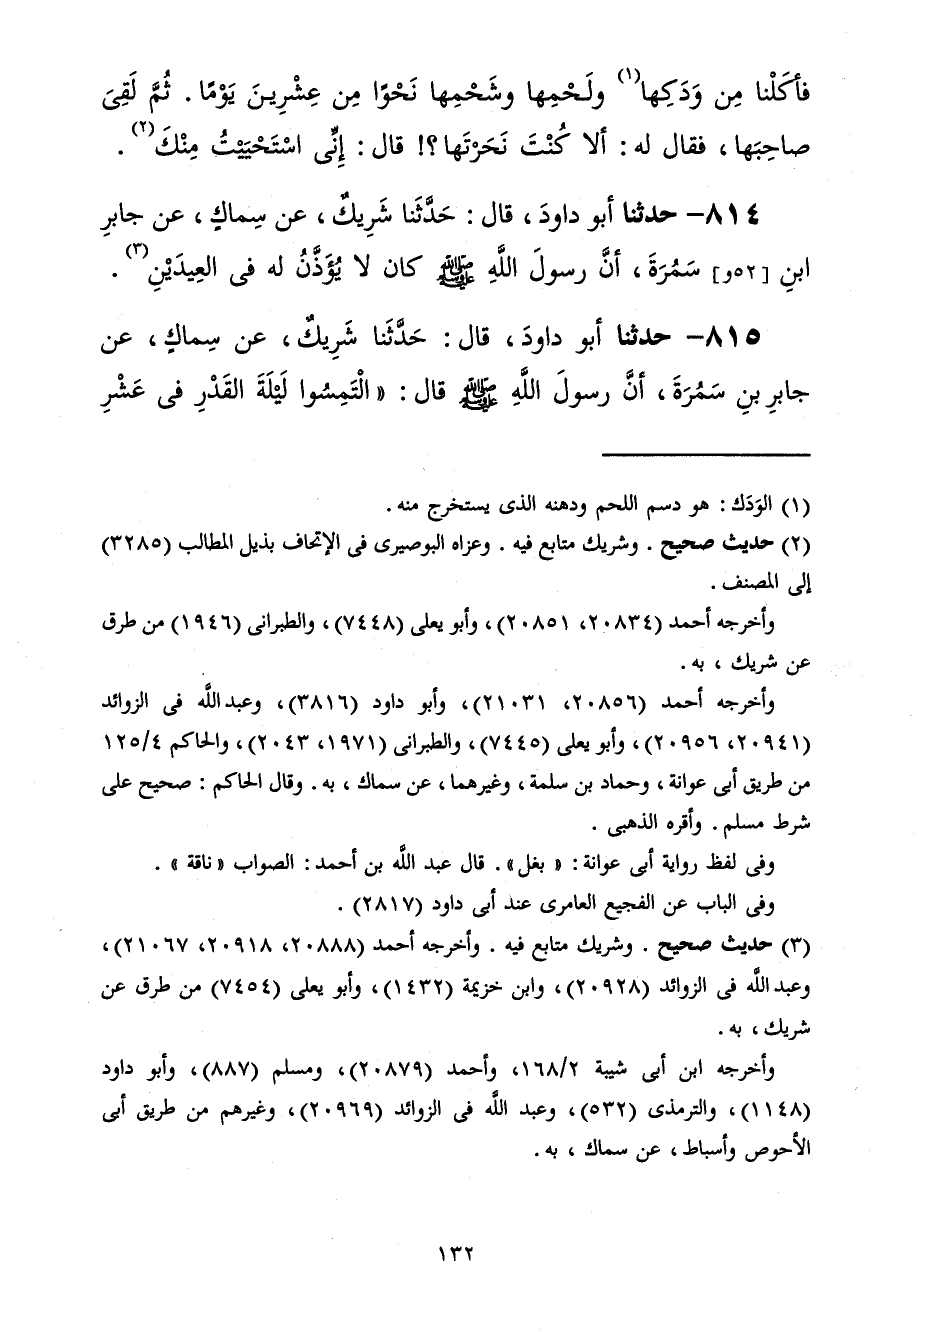 فأكَلْنا مِن وَدَكِها(١) ولَحْمِها وشَحْمِها نَحْوًا مِن عِشْرِينَ يَوْمًا . ثُمَّ لَقِىَ
صاحِبَها ، فقال له : ألا كُنْتَ نَحَرْتَها ؟! قال : إنِّى اسْتَحْيَيْتُ مِنْكَ(٢) .
٨١٤- حدثنا أبو داودَ ، قال : حَدَّثَنا شَرِيكٌ ، عن سِماكٍ ، عن جابرِ
ابنِ [٥٢و] سَمُرَةَ ، أنَّ رسولَ اللَّهِ ﷺ كان لا يُؤَذَّنُ له فى العِيدَيْنِ(٣) .
٨١٥- حدثنا أبو داودَ ، قال : حَدَّثَنا شَرِيكٌ ، عن سِماكٍ ، عن
جابرِ بنِ سَمُرَةَ ، أنَّ رسولَ اللَّهِ ﷺ قال : « الْتَمِسُوا لَيْلَةَ القَدْرِ فى عَشْرِ
(١) الوَدَك : هو دسم اللحم ودهنه الذى يستخرج منه .
(٢) حديث صحيح . وشريك متابع فيه . وعزاه البوصيرى فى الإتحاف بذيل المطالب (٣٢٨٥)
إلى المصنف .
وأخرجه أحمد (٢٠٨٣٤، ٢٠٨٥١)، وأبو يعلى (٧٤٤٨)، والطبرانى (١٩٤٦) من طرق
عن شريك ، به .
وأخرجه أحمد (٢٠٨٥٦، ٢١٠٣١)، وأبو داود (٣٨١٦)، وعبد اللَّه فى الزوائد
(٢٠٩٤١، ٢٠٩٥٦)، وأبو يعلى (٧٤٤٥)، والطبرانى (١٩٧١، ٢٠٤٣)، والحاكم ١٢٥/٤
من طريق أبى عوانة ، وحماد بن سلمة ، وغيرهما ، عن سماك ، به . وقال الحاكم : صحيح على
شرط مسلم . وأقره الذهبى .
وفى لفظ رواية أبى عوانة : « بغل » . قال عبد اللَّه بن أحمد : الصواب « ناقة » .
وفى الباب عن الفجيع العامرى عند أبى داود (٢٨١٧) .
(٣) حديث صحيح . وشريك متابع فيه . وأخرجه أحمد (٢٠٨٨٨، ٢٠٩١٨، ٢١٠٦٧)،
وعبد اللَّه فى الزوائد (٢٠٩٢٨)، وابن خزيمة (١٤٣٢)، وأبو يعلى (٧٤٥٤) من طرق عن
شريك ، به .
وأخرجه ابن أبى شيبة ١٦٨/٢، وأحمد (٢٠٨٧٩)، ومسلم (٨٨٧)، وأبو داود
(١١٤٨)، والترمذى (٥٣٢)، وعبد اللَّه فى الزوائد (٢٠٩٦٩)، وغيرهم من طريق أبى
الأحوص وأسباط ، عن سماك ، به .
١٣٢